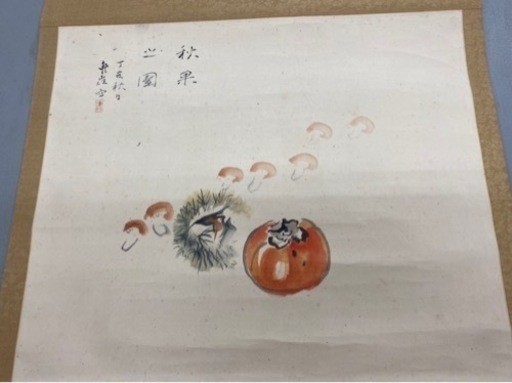 秋果
之図
丁亥秋日